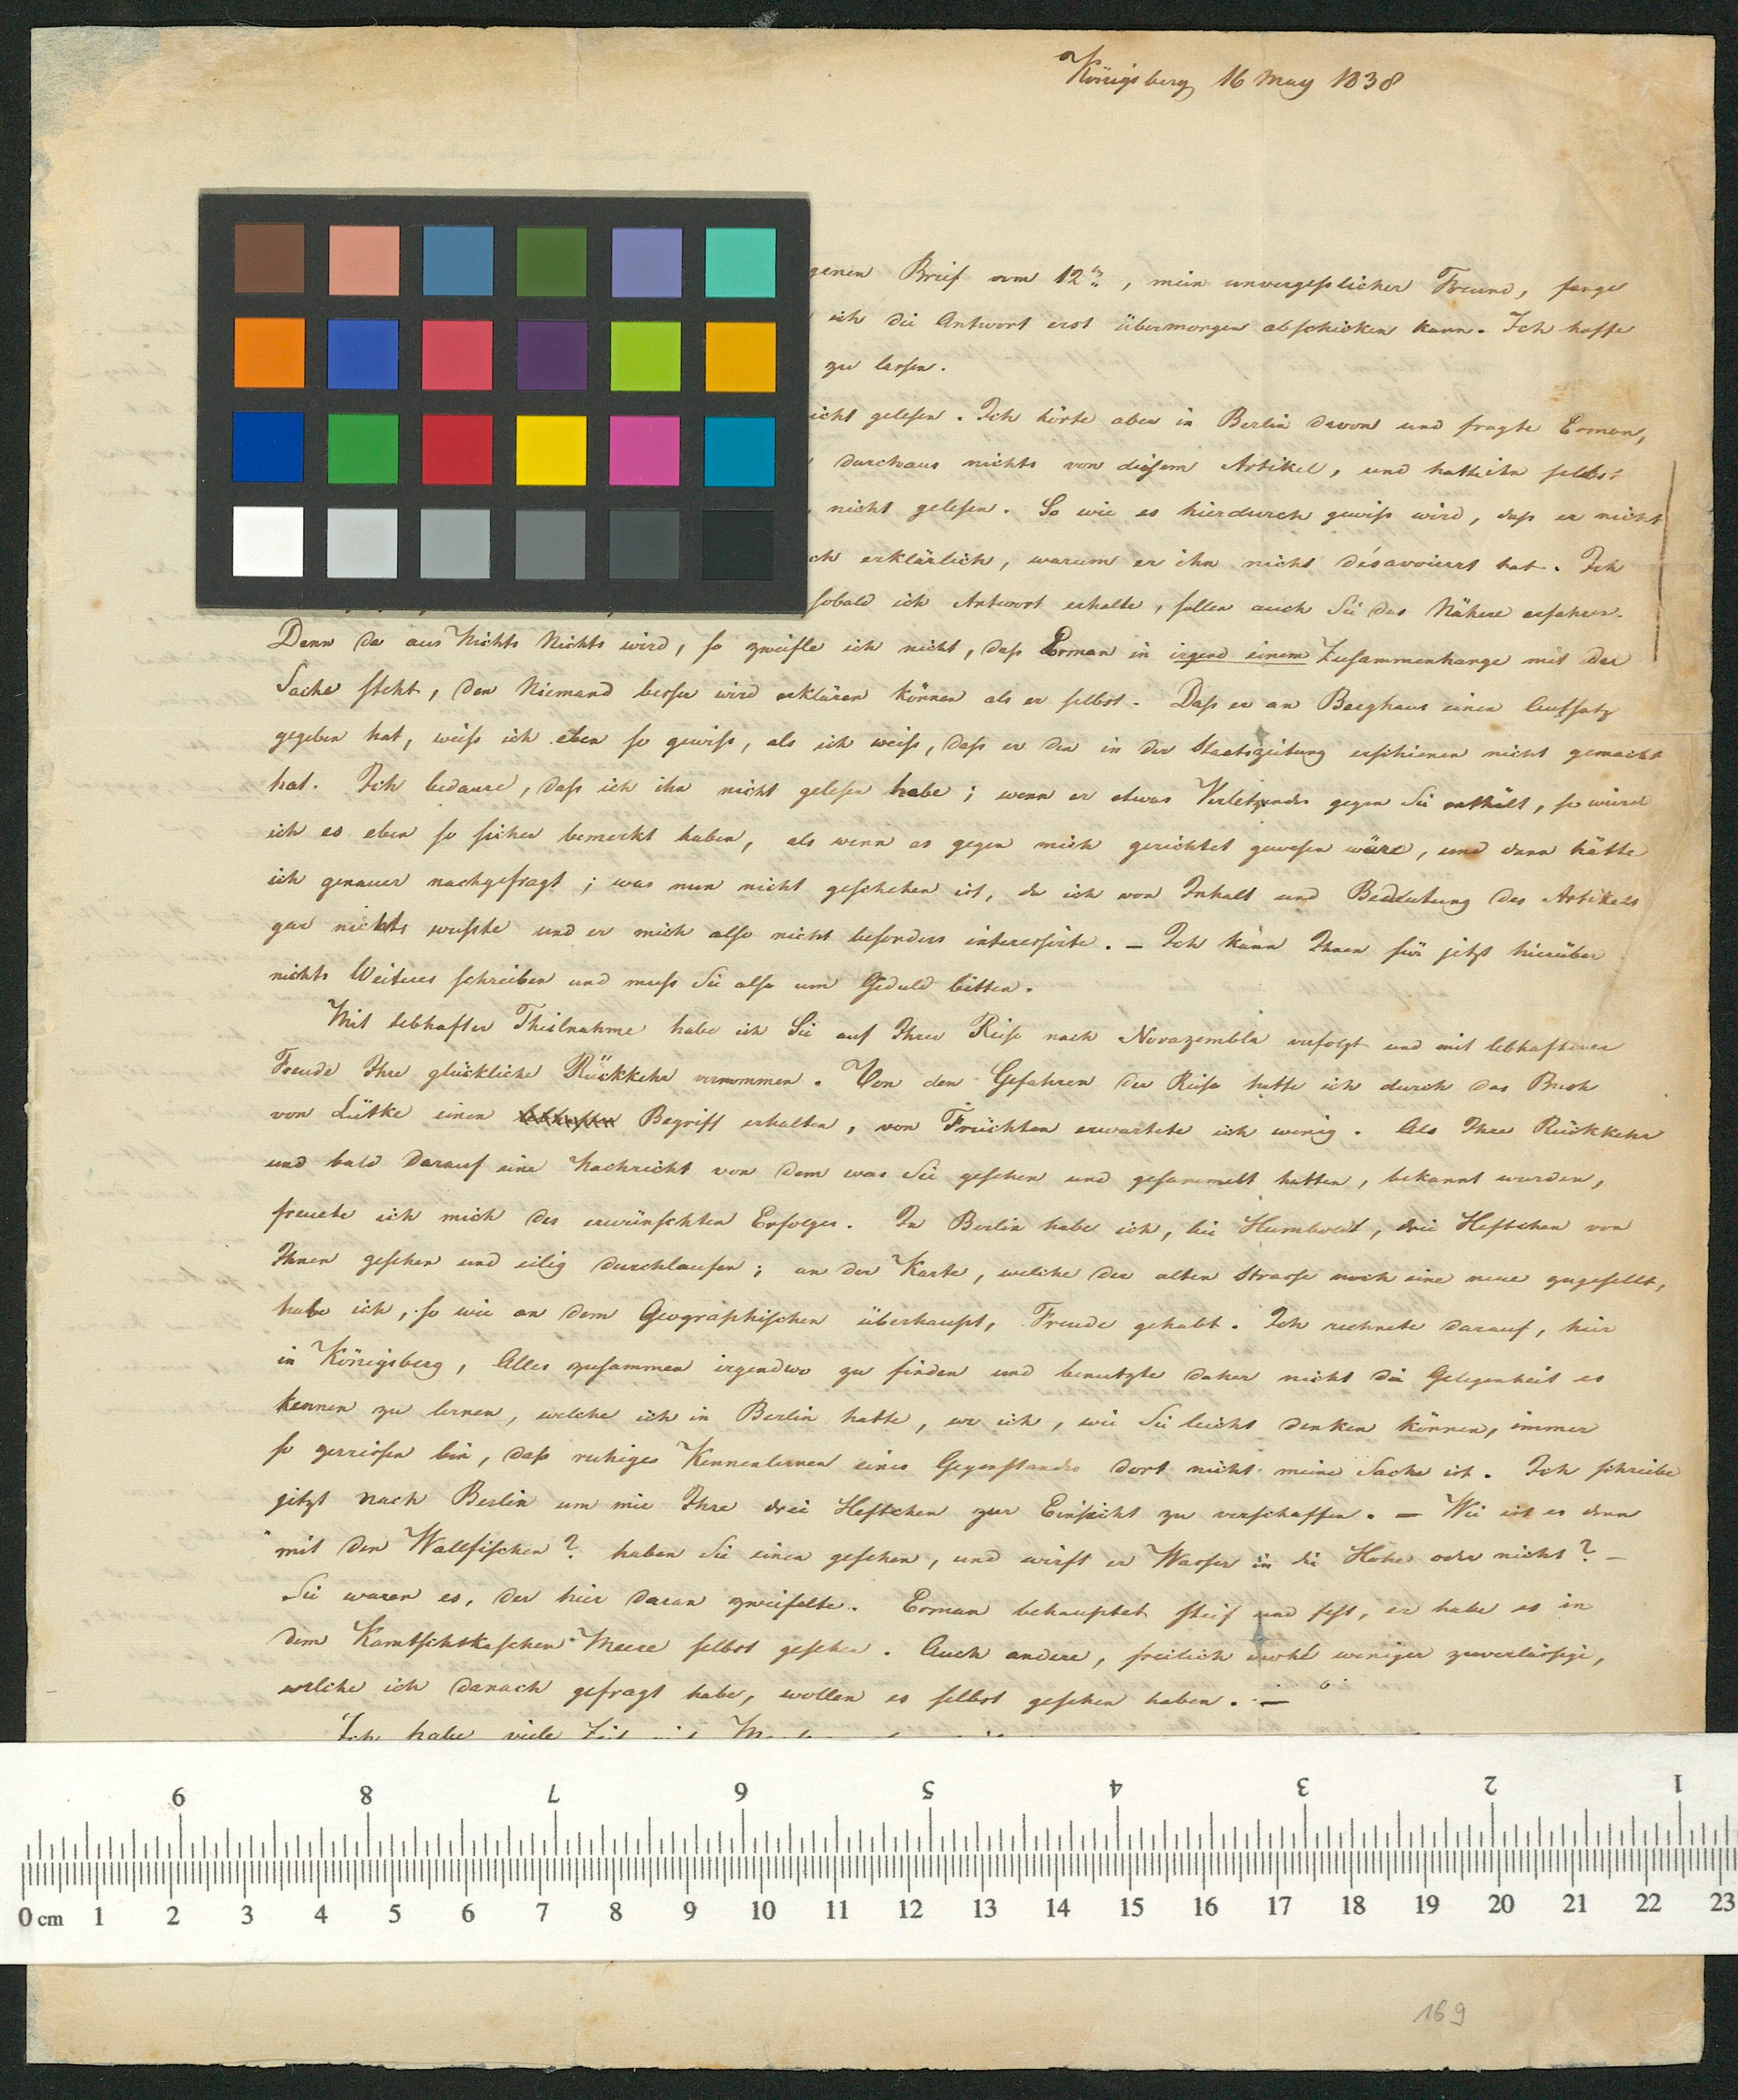 Königsberg 16 May 1838
genen Brief vom 12ten, mein unvergeßlicher Freund, fange
ich die Antwort erst übermorgen abschicken kann. Ich hoffe
zu lassen.
icht gelesen. Ich hörte aber in Berlin davon und fragte Erman,
durchaus nichts von diesem Artikel, und hatte ihn selbst
nicht gelesen. So wie es hierdurch gewiß wird, daß er nicht
ch erklärlich, warum er ihn nicht désavouirt hat. Ich
sobald ich Antwort erhalte, sollen auch Sie das Nähere erfahren.
Denn da aus Nichts Nichts wird, so zweifle ich nicht, daß Erman in irgend einem Zusammenhange mit der
Sache steht, den Niemand besser wird erklären können als er selbst. Daß er an Berghaus einen Aufsatz
gegeben hat, weiß ich eben so gewiß, als ich weiß, daß er den in der Staatszeitung erschienen nicht gemacht
hat. Ich bedaure, daß ich ihn nicht gelesen habe; wenn er etwas Verletzendes gegen Sie enthält, so würde
ich es eben so sicher bemerkt haben, als wenn es gegen mich gerichtet gewesen wäre, und dann hätte
ich genauer nachgefragt; was nun nicht geschehen ist, da ich von Inhalt und Bedeutung des Artikels
gar nichts wußte und er mich also nicht besonders interessirte. – Ich kann Ihnen für jetzt hierüber
nichts Weiteres schreiben und muß Sie also um Geduld bitten.
Mit lebhafter Theilnahme habe ich Sie auf Ihrer Reise nach Novazembla verfolgt und mit lebhafterer
Freude Ihre glückliche Rückkehr vernommen. Von den Gefahren der Reise hatte ich durch das Buch
von Lütke einen Begriff erhalten, von Früchten erwartete ich wenig. Als Ihre Rückkehr
und bald darauf eine Nachricht von dem was Sie gesehen und gesammelt hatten, bekannt wurden,
freuete ich mich des erwünschten Erfolges. In Berlin habe ich, bei Humboldt, drei Heftchen von
Ihnen gesehen und eilig durchlaufen; an der Karte, welche der alten Strasse noch eine neue zugesellt,
habe ich, so wie an dem Geographischen überhaupt, Freude gehabt. Ich rechnete darauf, hier
in Königsberg, Alles zusammen irgendwo zu finden und benutzte daher nicht die Gelegenheit es
kennen zu lernen, welche ich in Berlin hatte, wo ich, wie Sie leicht denken können, immer
so zerrissen bin, daß ruhiges Kennenlernen eines Gegenstandes dort nicht meine Sache ist. Ich schreibe
jetzt nach Berlin um mir Ihre drei Heftchen zur Einsicht zu verschaffen. – Wie ist es denn
mit den Wallfischen? haben Sie einen gesehen, und wirft er Wasser in die Höhe oder nicht? –
Sie waren es, der hier daran zweifelte. Erman behauptet steif und fest, er habe es in
dem Kamtschtkaschen Meere selbst gesehen. Auch andere, freilich wohl weniger zuverlässige,
welche ich danach gefragt habe, wollen es selbst gesehen haben. –
Ich habe viele Zeit mit
9 8 7 6 5 4 3 2 1
0 cm 1 2 3 4 5 6 7 8 9 10 11 12 13 14 15 16 17 18 19 20 21 22 23
169